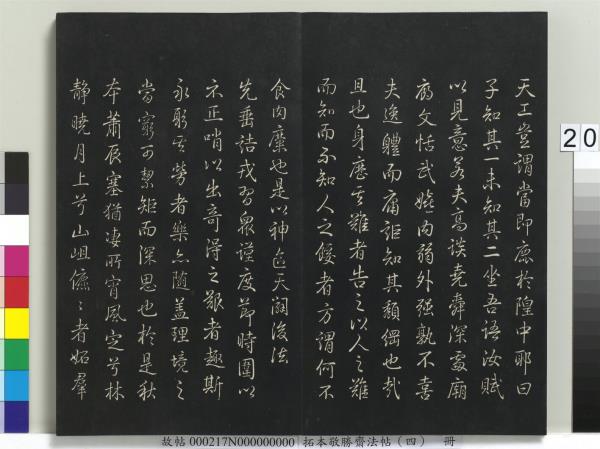 天工豈謂當即鹿於隍中耶曰
子知其一未知其二坐吾語汝賦
以見意若夫高談堯舜深處廟
廊文恬武嬉內弱外强孰不喜
夫逸體而庸詎知其頹綱也哉
且也身歷其難者告之以人之難
而知而不知人之餒者方謂何不
食肉糜也是以神这天闢後法
先垂詰戎習眾謹度節時圍以
示正哨以出奇得之艱者趣斯
永躬其勞者樂亦隨蓋理境之
當窮可絜矩而深思也於是秋
本蕭辰塞猶凄所宵風定兮林
靜曉月上兮山岨儦儦者如羣
20
故帖 000217N000000000 拓本敬勝齋法帖（四） 冊